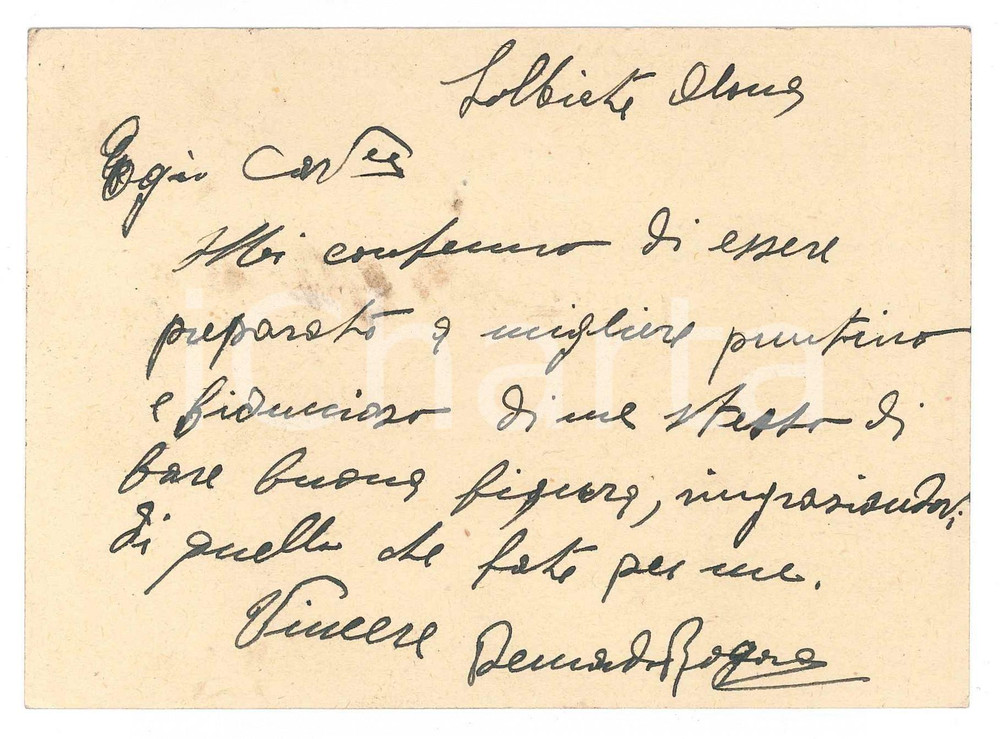 Solbiate Olona
Egio Cav
Mi confermo di essere
preparato a migliore puntino
e fiducioso di me stesso di
fare buona figura, ringraziandovi
di quello che fate per me.
Vincere Bernardo Rogora
iCharta